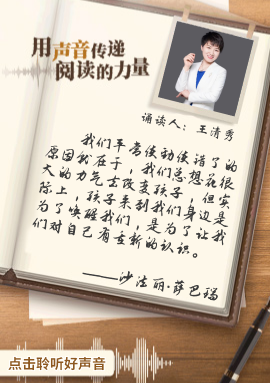 用声音传递
阅读的力量
诵读人：王清秀
我们平常使劲使错了的
原因就在于，我们总想花很
大的力气去改变孩子，但实
际上，孩子来到我们身边是
为了唤醒我们，是为了让我
们对自己有全新的认识。
——沙法丽·萨巴瑞
点击聆听好声音